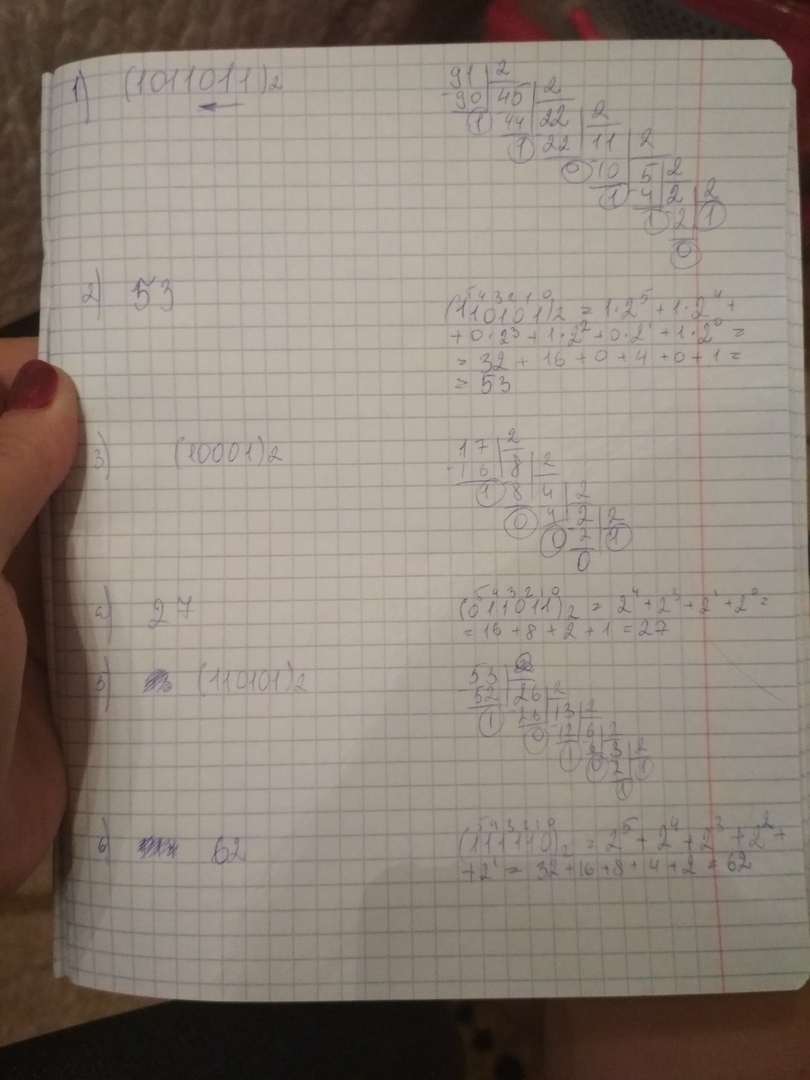 1) (1011011)2
91 2
-90 45 2
1 44 22 2
1 22 11 2
0 10 5 2
1 4 2 2
1 2 1
0
2) 53
5 4 3 2 1 0
(110101)2 = 1·2^5 + 1·2^4 +
+ 0·2^3 + 1·2^2 + 0·2^1 + 1·2^0 =
= 32 + 16 + 0 + 4 + 0 + 1 =
= 53
3) (10001)2
17 2
-16 8 2
1 8 4 2
0 4 2 2
0 2 1
0
4) 27
5 4 3 2 1 0
(011011)2 = 2^4 + 2^3 + 2^1 + 2^0 =
= 16 + 8 + 2 + 1 = 27
5) (110101)2
53 2
-52 26 2
1 26 13 2
0 12 6 2
1 6 3 2
0 2 1
1
6) 62
5 4 3 2 1 0
(111110)2 = 2^5 + 2^4 + 2^3 + 2^2 +
+ 2^1 = 32 + 16 + 8 + 4 + 2 = 62